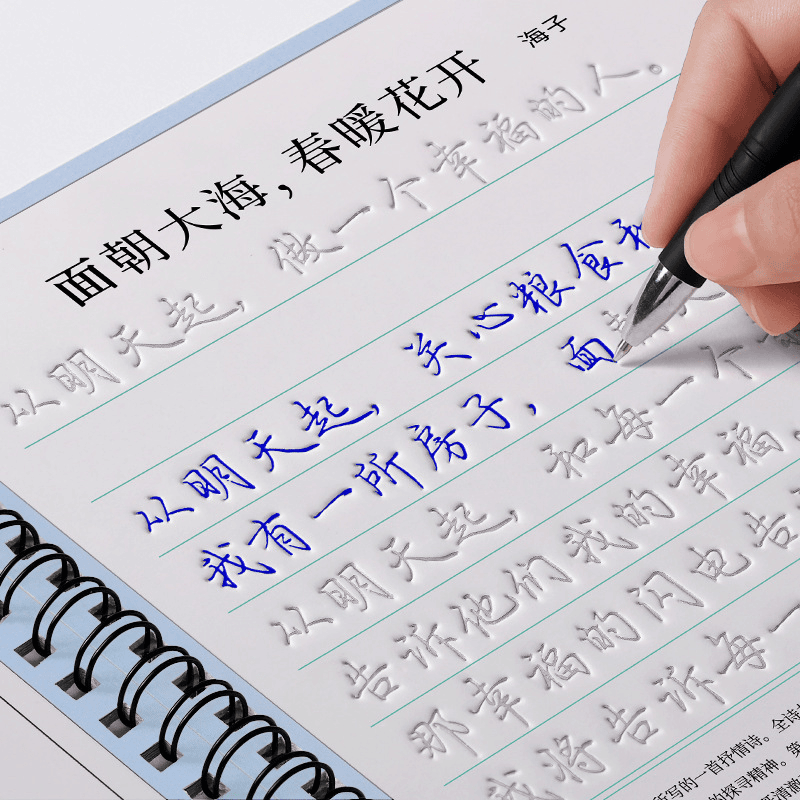 面朝大海，春暖花开
海子
从明天起，做一个幸福的人。
从明天起，关心粮食和
我有一所房子，面
从明天起，和每一个
告诉他们我的幸福，
那幸福的闪电告
我将告诉每一
所写的一首抒情诗。全诗
的探寻精神。第
清澈